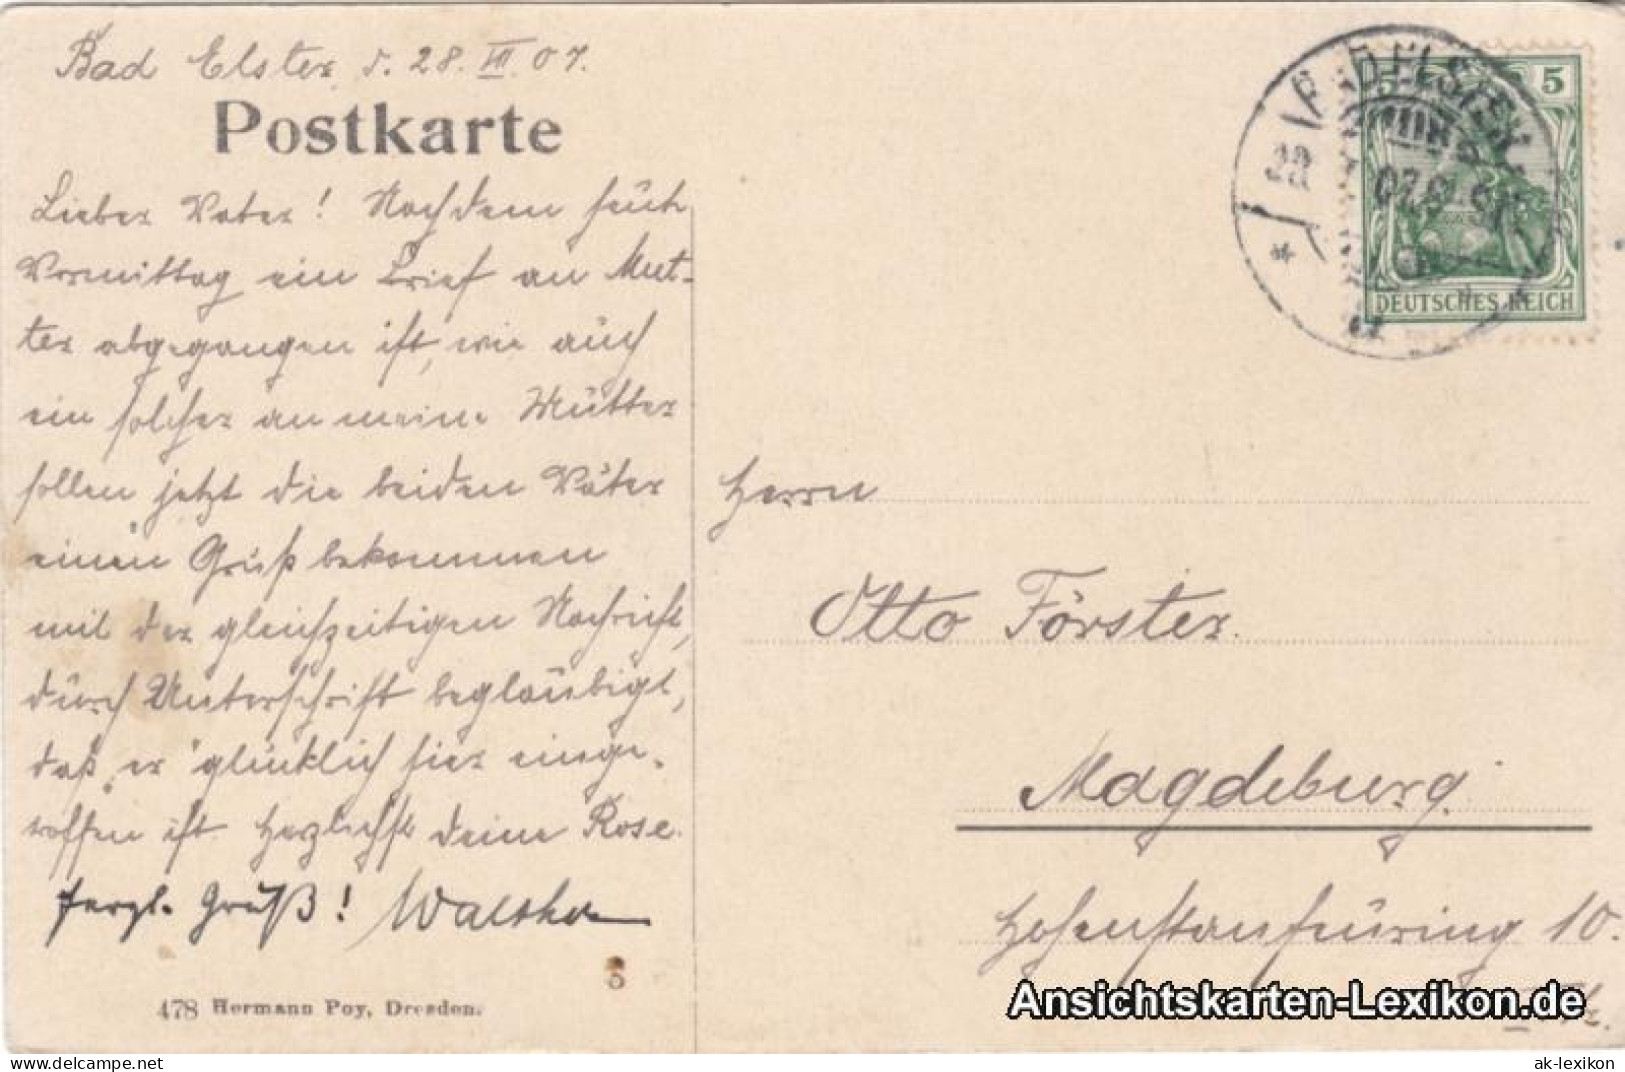 Bad Elster d. 28. VII 07.
Postkarte
Lieber Vater! Nachdem heute
Vormittag ein Brief an Mut-
ter abgegangen ist, wie auch
ein solcher an meine Mutter
sollen jetzt die beiden Väter
einen Gruß bekommen
mit der gleichzeitigen Nachricht,
durch Unterschrift beglaubigt,
daß er glücklich hier einge-
troffen ist. Herzlichst deine Rose.
Herzl. Gruß! Walther
5
478 Hermann Poy, Dresden.
BAD ELSTER
5
DEUTSCHES REICH
Herrn
Otto Förster.
Magdeburg
Hohenstaufenring 10.
Ansichtskarten-Lexikon.de
ak-lexikon